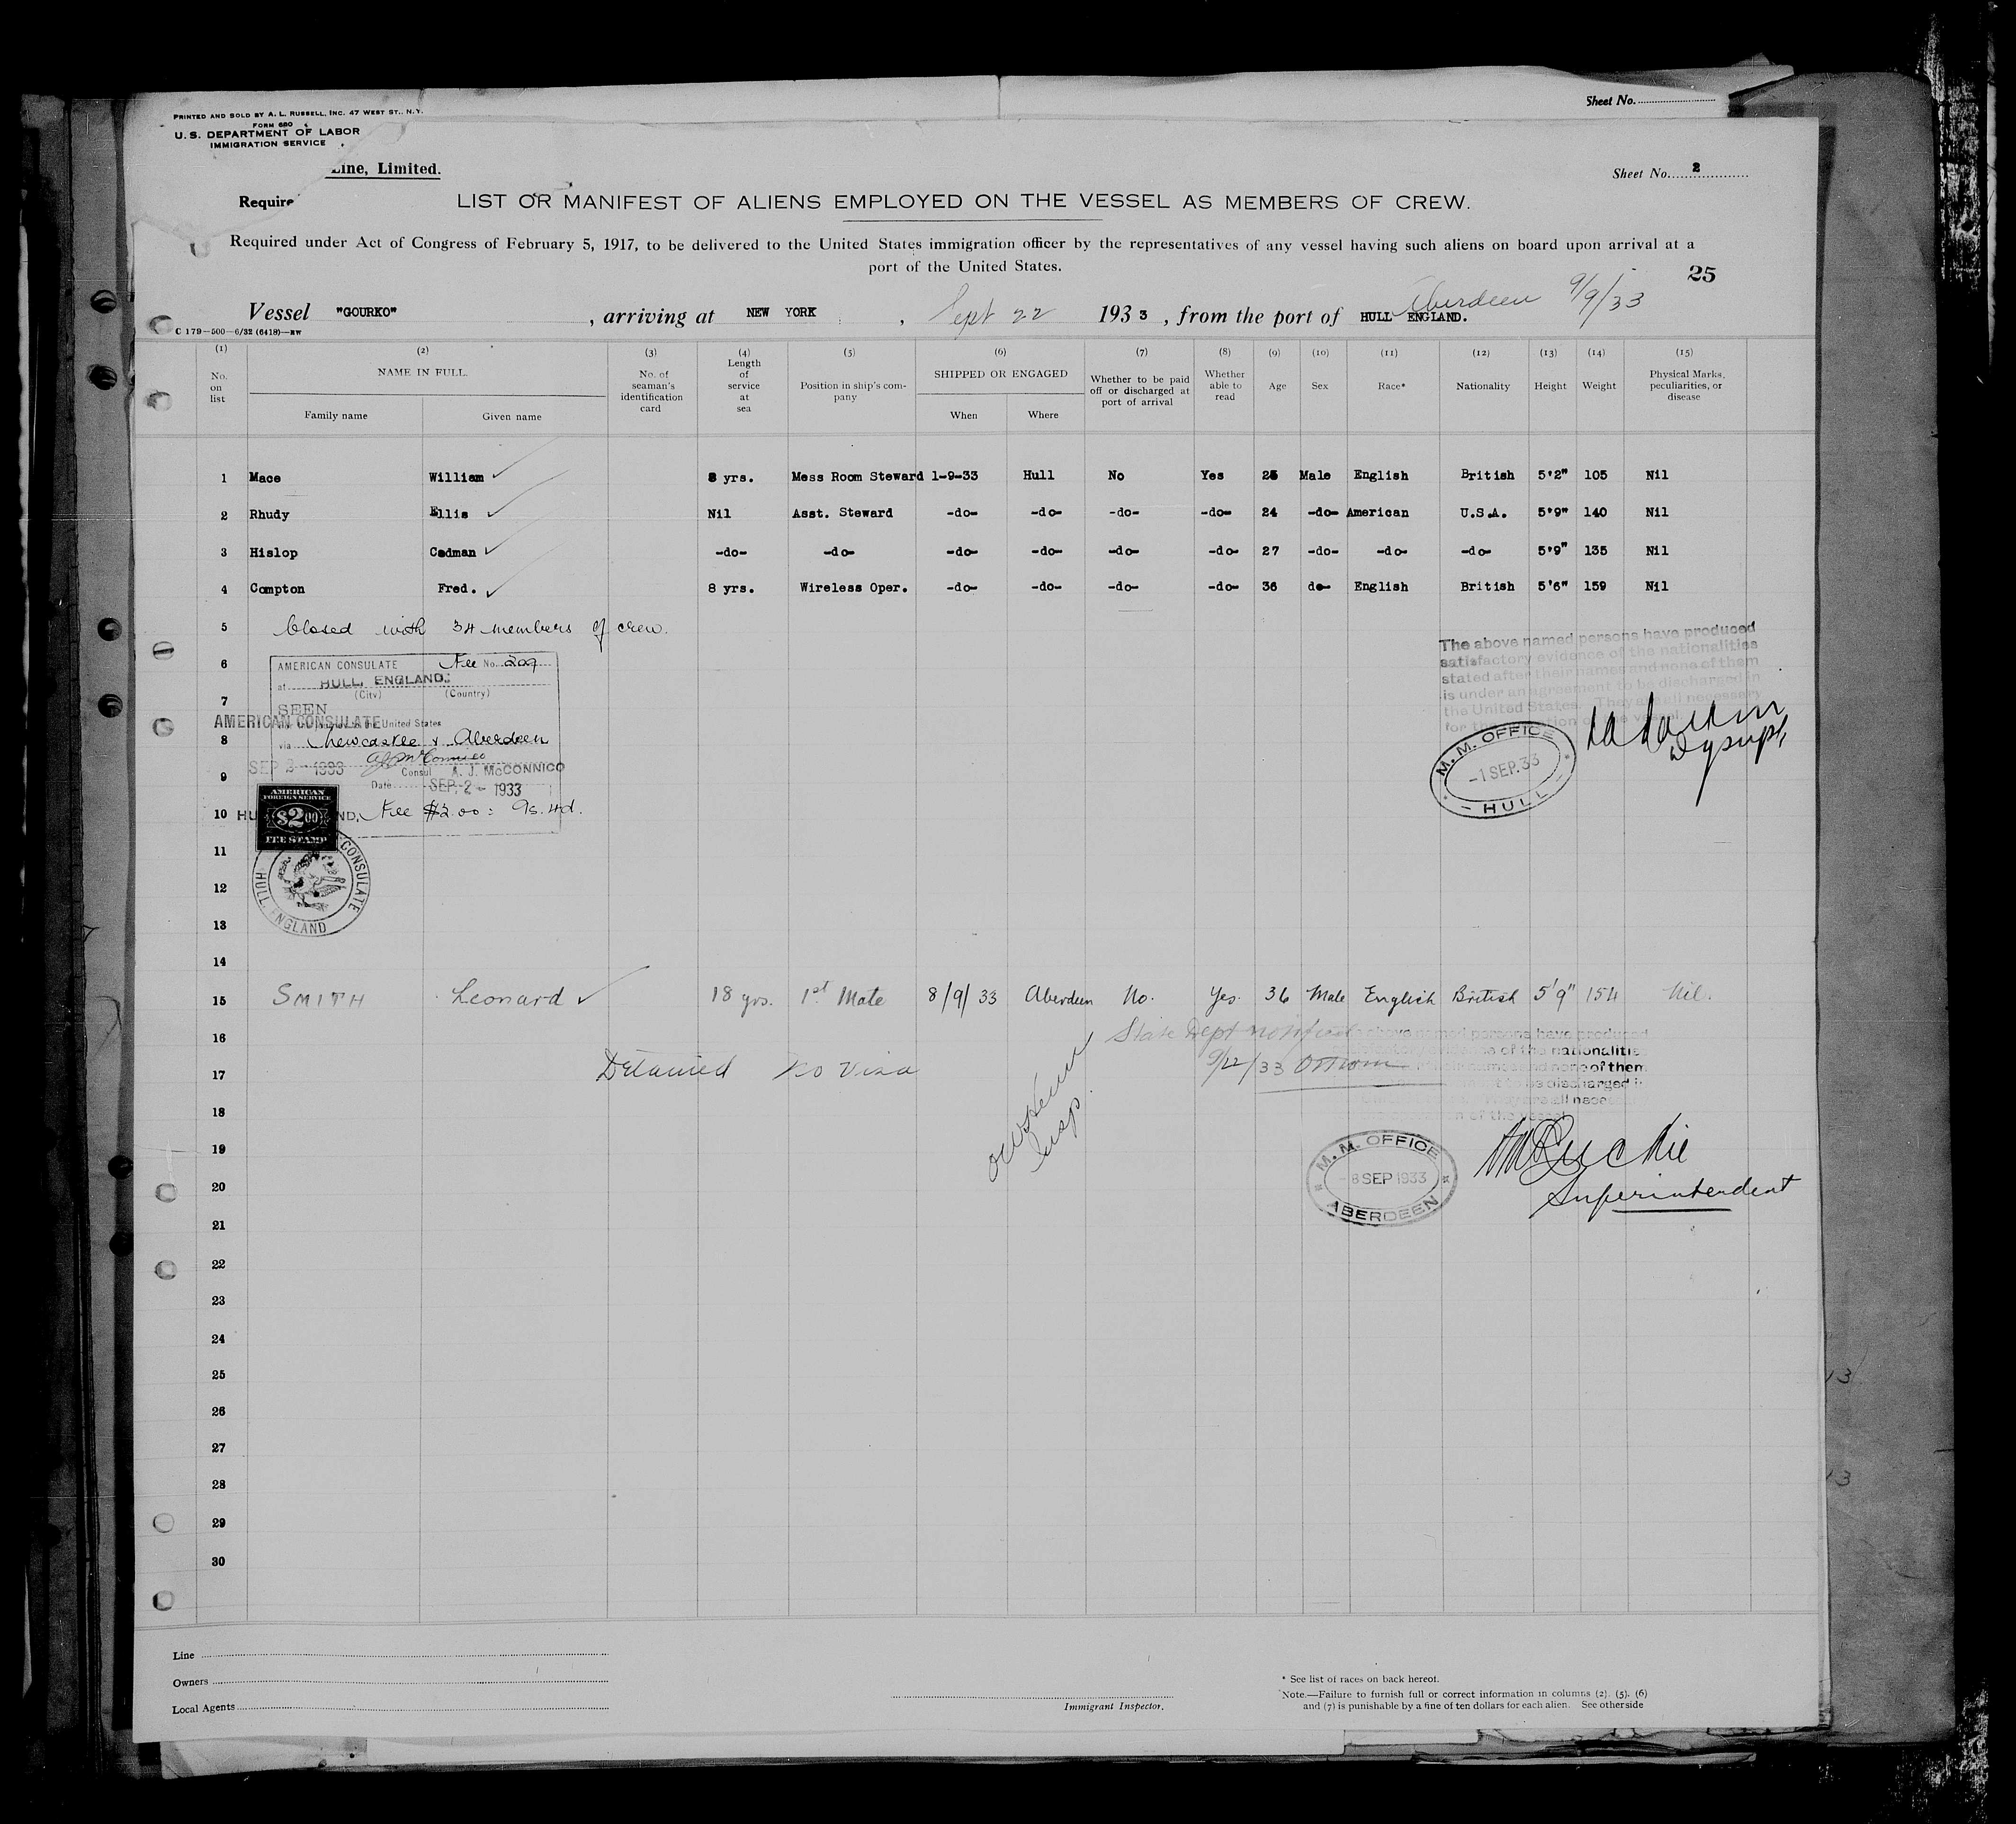 PRINTED AND SOLD BY A. L. RUSSELL, INC. 47 WEST ST., N.Y.
FORM 680
U. S. DEPARTMENT OF LABOR
IMMIGRATION SERVICE
Sheet No.
Line, Limited.
Sheet No. 2
Require
LIST OR MANIFEST OF ALIENS EMPLOYED ON THE VESSEL AS MEMBERS OF CREW.
Required under Act of Congress of February 5, 1917, to be delivered to the United States immigration officer by the representatives of any vessel having such aliens on board upon arrival at a
port of the United States.
25
Aberdeen 9/9/33
Vessel "GOURKO", arriving at NEW YORK, Sept 22 1933, from the port of HULL ENGLAND.
C 179-500-6/32 (6418)-RW
(1) (2) (3) (4) (5) (6) (7) (8) (9) (10) (11) (12) (13) (14) (15)
No. on list NAME IN FULL. Family name Given name No. of seaman's identification card Length of service at sea Position in ship's company SHIPPED OR ENGAGED When Where Whether to be paid off or discharged at port of arrival Whether able to read Age Sex Race* Nationality Height Weight Physical Marks, peculiarities, or disease
1 Mace William 8 yrs. Mess Room Steward 1-9-33 Hull No Yes 25 Male English British 5'2" 105 Nil
2 Rhudy Ellis Nil Asst. Steward -do- -do- -do- -do- 24 -do- American U.S.A. 5'9" 140 Nil
3 Hislop Cadman -do- -do- -do- -do- -do- -do- 27 -do- -do- -do- 5'9" 135 Nil
4 Compton Fred. 8 yrs. Wireless Oper. -do- -do- -do- -do- 36 do- English British 5'6" 159 Nil
5 Closed with 34 members of crew.
The above named persons have produced
satisfactory evidence of the nationalities
stated after their names and none of them
is under an agreement to be discharged in
the United States. They are all necessary
for the operation of the vessel
6 AMERICAN CONSULATE Fee No. 209
at HULL, ENGLAND.
(City) (Country)
7 SEEN
AMERICAN CONSULATE
United States
8 via Newcastle & Aberdeen
SEP 2 - 1933
9 Consul A. J. McCONNICO
Date SEP. 2 - 1933
10 Fee $2.00 : 9s. 4d.
AMERICAN
FOREIGN SERVICE
$2.00
FEE STAMP
CONSULATE
HULL, ENGLAND
M. M. OFFICE
-1 SEP. 33
- HULL -
11
12
13
14
15 SMITH Leonard 18 yrs. 1st Mate 8/9/33 Aberdeen No. Yes. 36 Male English British 5'9" 154 Nil.
16 State Dept notified
above named persons have produced
evidence of the nationalities
17 Detained No Visa
9/22/33
none of them
to be discharged in
are all neces
of the vessel
Insp.
18
19
M. M. OFFICE
- 8 SEP 1933
ABERDEEN
Superintendent
20
21
22
23
24
25
26
27
28
29
30
Line
Owners
Local Agents
Immigrant Inspector.
* See list of races on back hereof.
Note.—Failure to furnish full or correct information in columns (2), (5), (6)
and (7) is punishable by a fine of ten dollars for each alien. See other side
13
13